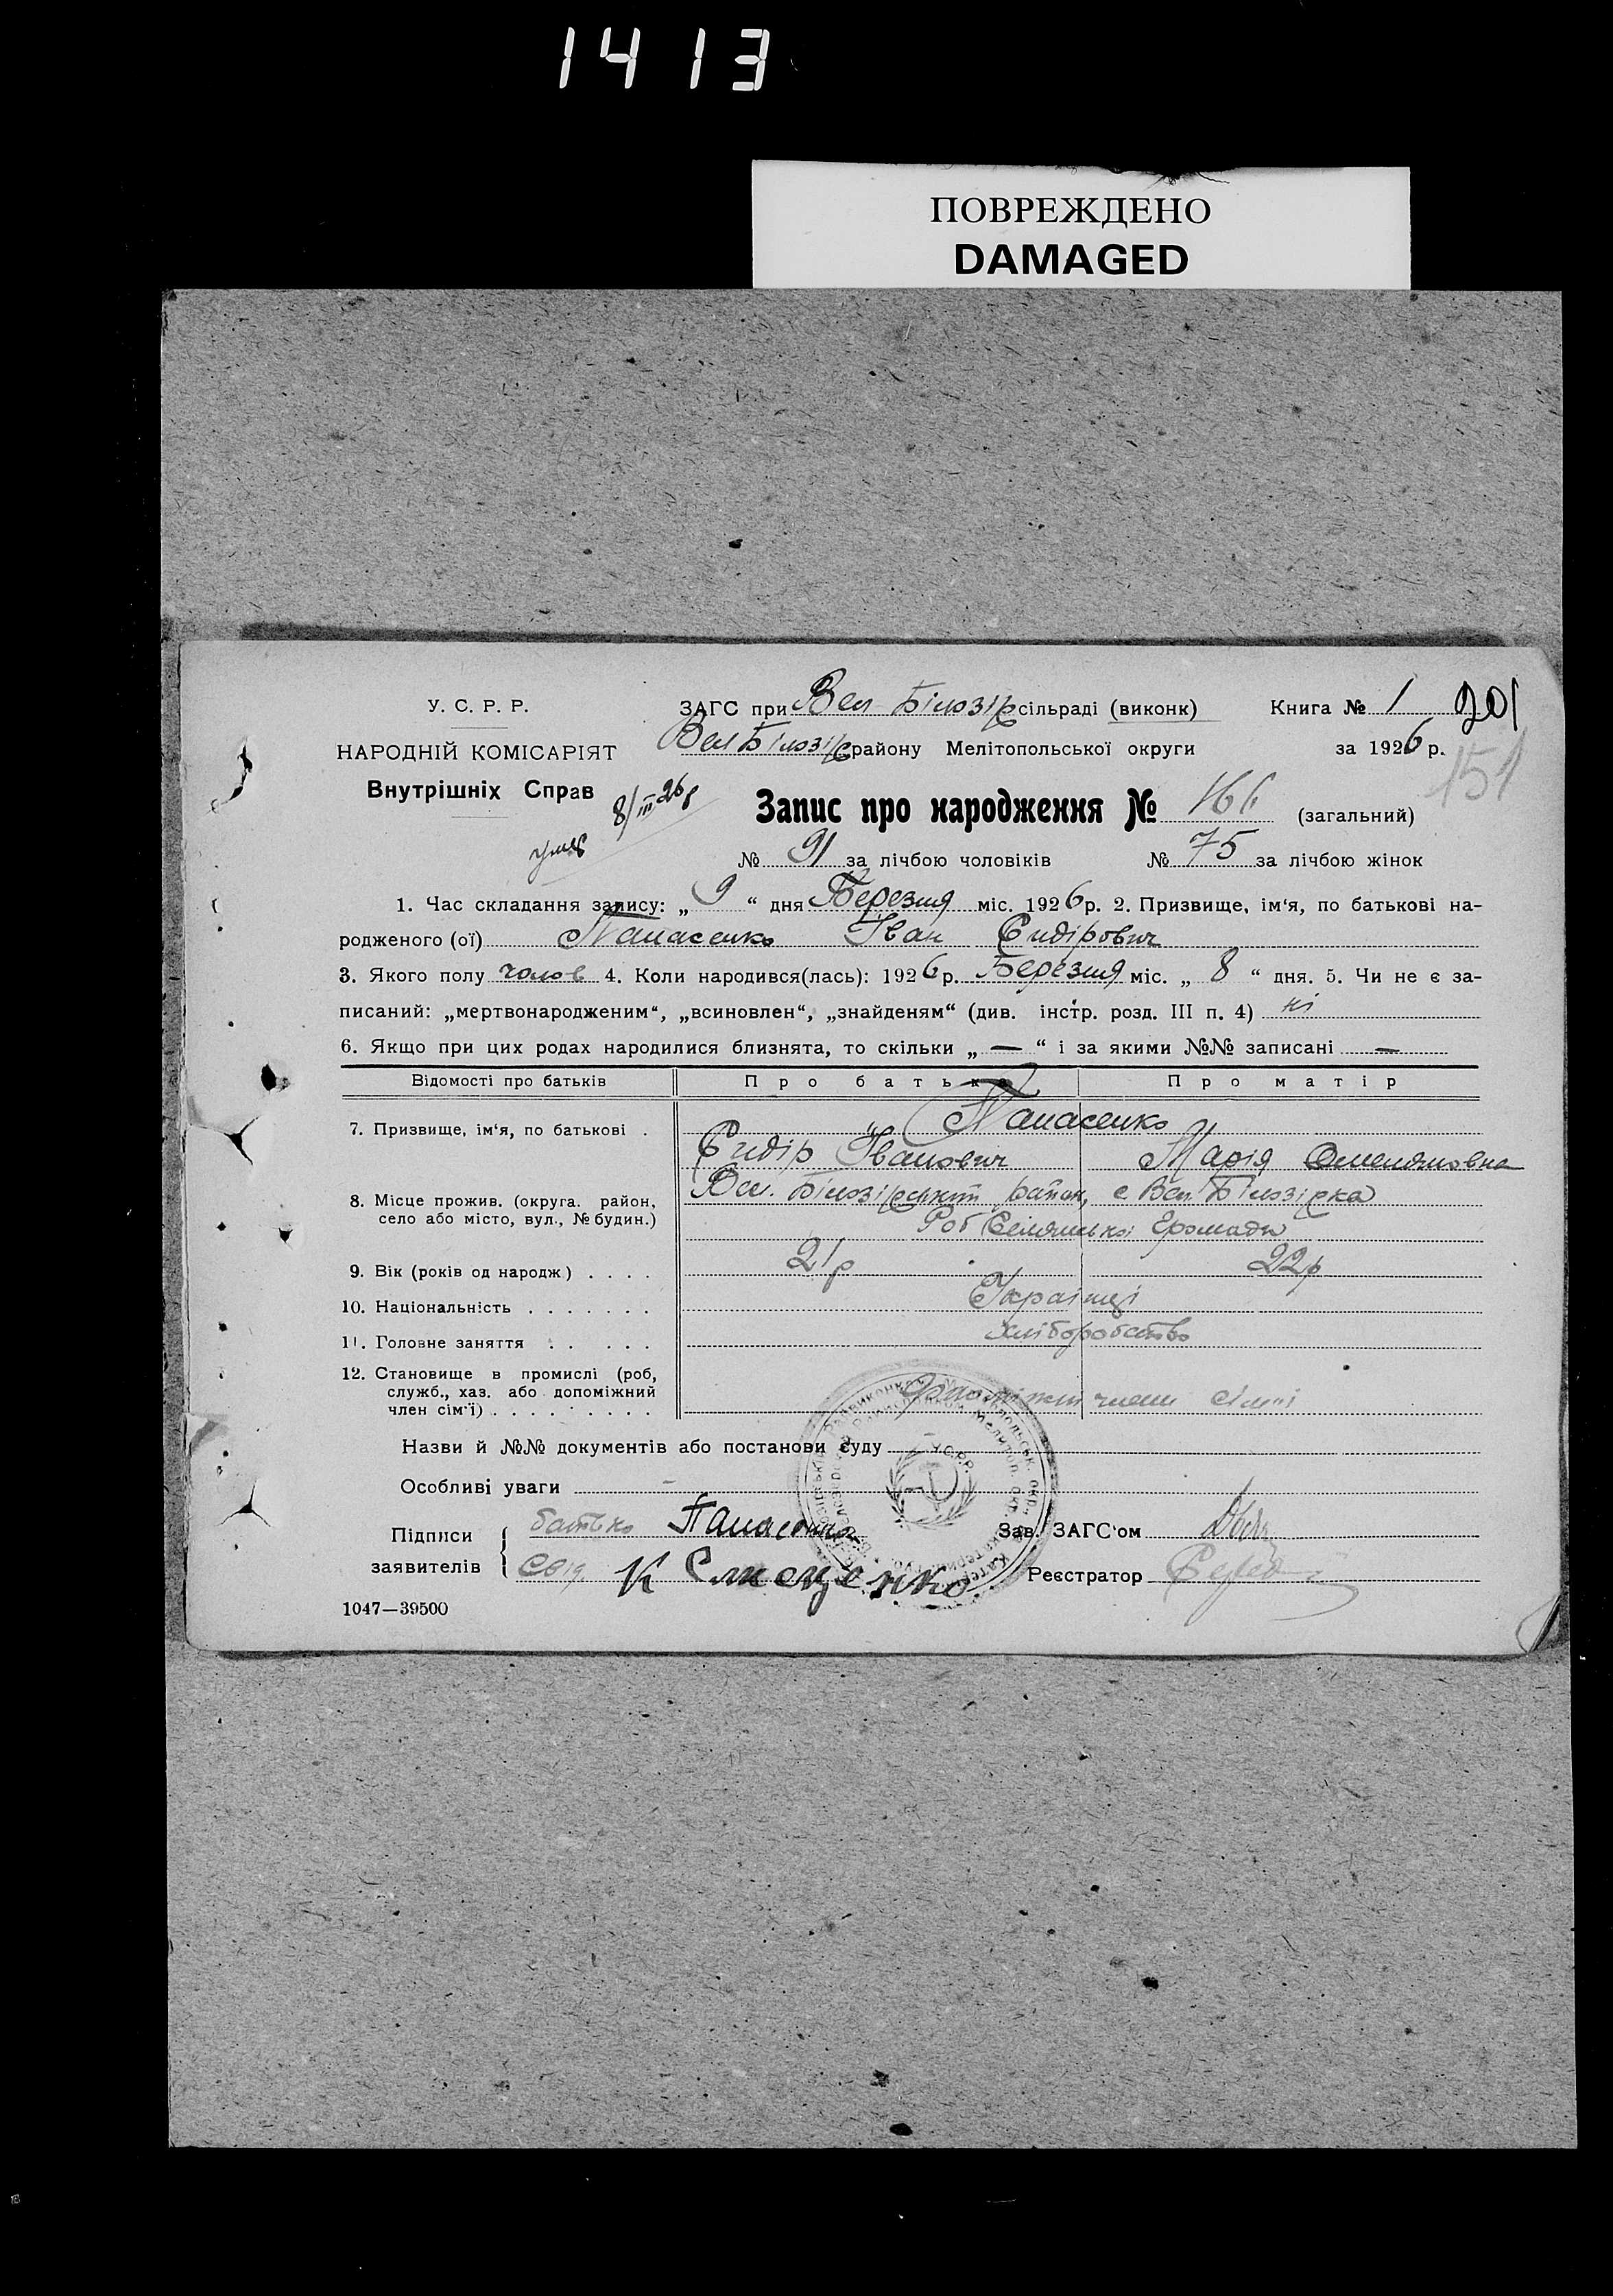 1413
ПОВРЕЖДЕНО
DAMAGED
У. С. Р. Р.
ЗАГС при Вел-Білозір сільраді (виконк)
Книга № 1 201
НАРОДНІЙ КОМІСАРІЯТ
Вел Білозір району Мелітопольської округи
за 1926 р.
151
Внутрішніх Справ
умер 8/III 26 р
Запис про народження № 166 (загальний)
№ 91 за лічбою чоловіків № 75 за лічбою жінок
1. Час складання запису: „ 9 “ дня Березня міс. 1926 р. 2. Призвище, ім‘я, по батькові на-
родженого (ої) Панасенко Іван Сидірович
3. Якого полу чолов 4. Коли народився(лась): 1926 р. Березня міс. „ 8 “ дня. 5. Чи не є за-
писаний: „мертвонародженим“, „всиновлен“, „знайденям“ (див. інстр. розд. III п. 4) ні
6. Якщо при цих родах народилися близнята, то скільки „ — “ і за якими №№ записані —
Відомості про батьків Про батька Про матір
Панасенко
7. Призвище, ім‘я, по батькові .
Сидір Іванович Марія Омеляновна
8. Місце прожив. (округа. район,
село або місто, вул., № будин.)
Вел. Білозірський район, с Вел Білозірка
Роб Селянської Громади
9. Вік (років од народж) . . . . 21 р 22 р
10. Національність . . . . . . . Українці
11. Головне заняття . . . . . хліборобство
12. Становище в промислі (роб,
служб., хаз. або допоміжний
член сім‘ї) . . . . . . . . .
члени сім"ї
Назви й №№ документів або постанови суду
Особливі уваги -
У.С.Р.Р.
Підписи
заявителів
батько Панасенко
Свід К Слющенко
Зав. ЗАГС‘ом
Реєстратор
1047—39500